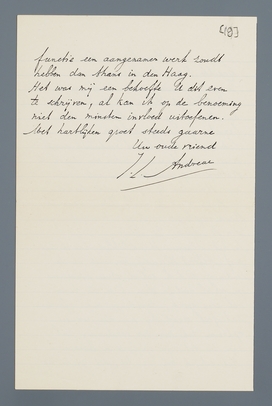 [19]
functie een aangenamer werk zoudt
hebben dan thans in den Haag.
Het was mij een behoefte U dit even
te schrijven, al kan ik op de benoeming
niet den minsten invloed uitoefenen.
Met hartlijken groet steeds gaarne
Uw oude vriend
Andreae